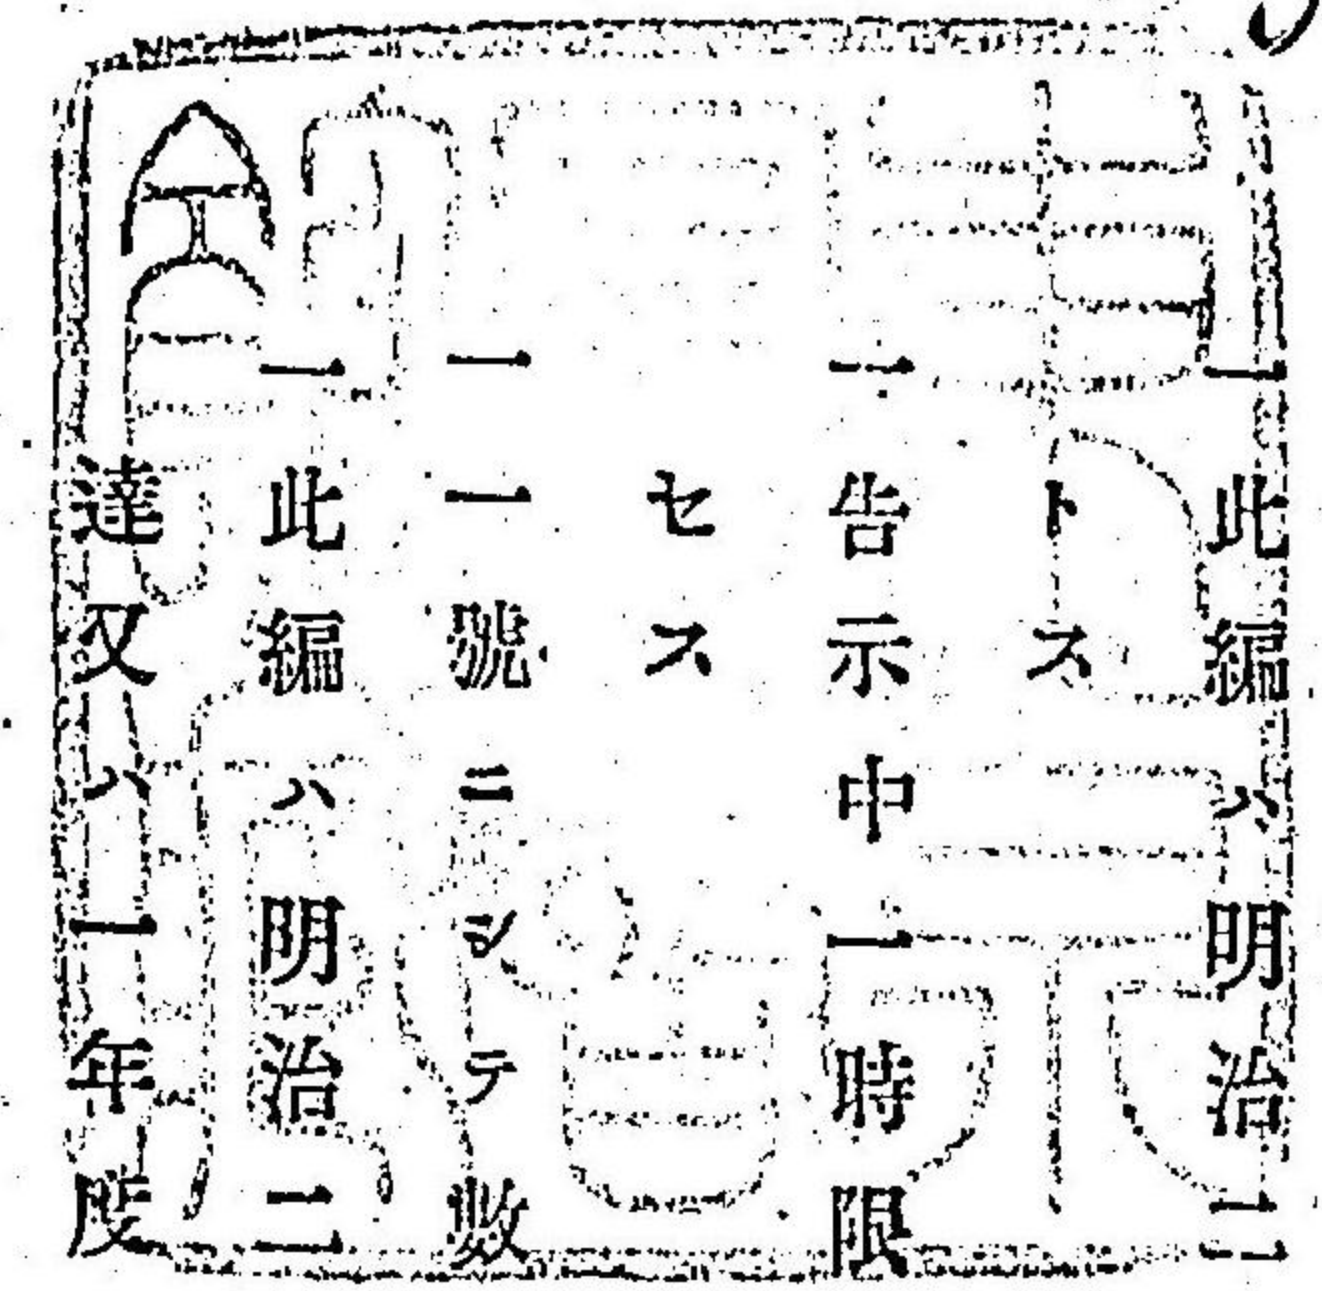 一此編ハ明治二
トス
一告示中一時限
セス
一一號ニシテ數
一此編ハ明治二
達又ハ一年度